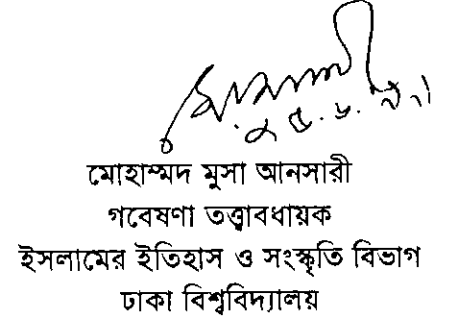 মোহাম্মদ মুসা আনসারী
গবেষণা তত্ত্বাবধায়ক
ইসলামের ইতিহাস ও সংস্কৃতি বিভাগ
ঢাকা বিশ্ববিদ্যালয়